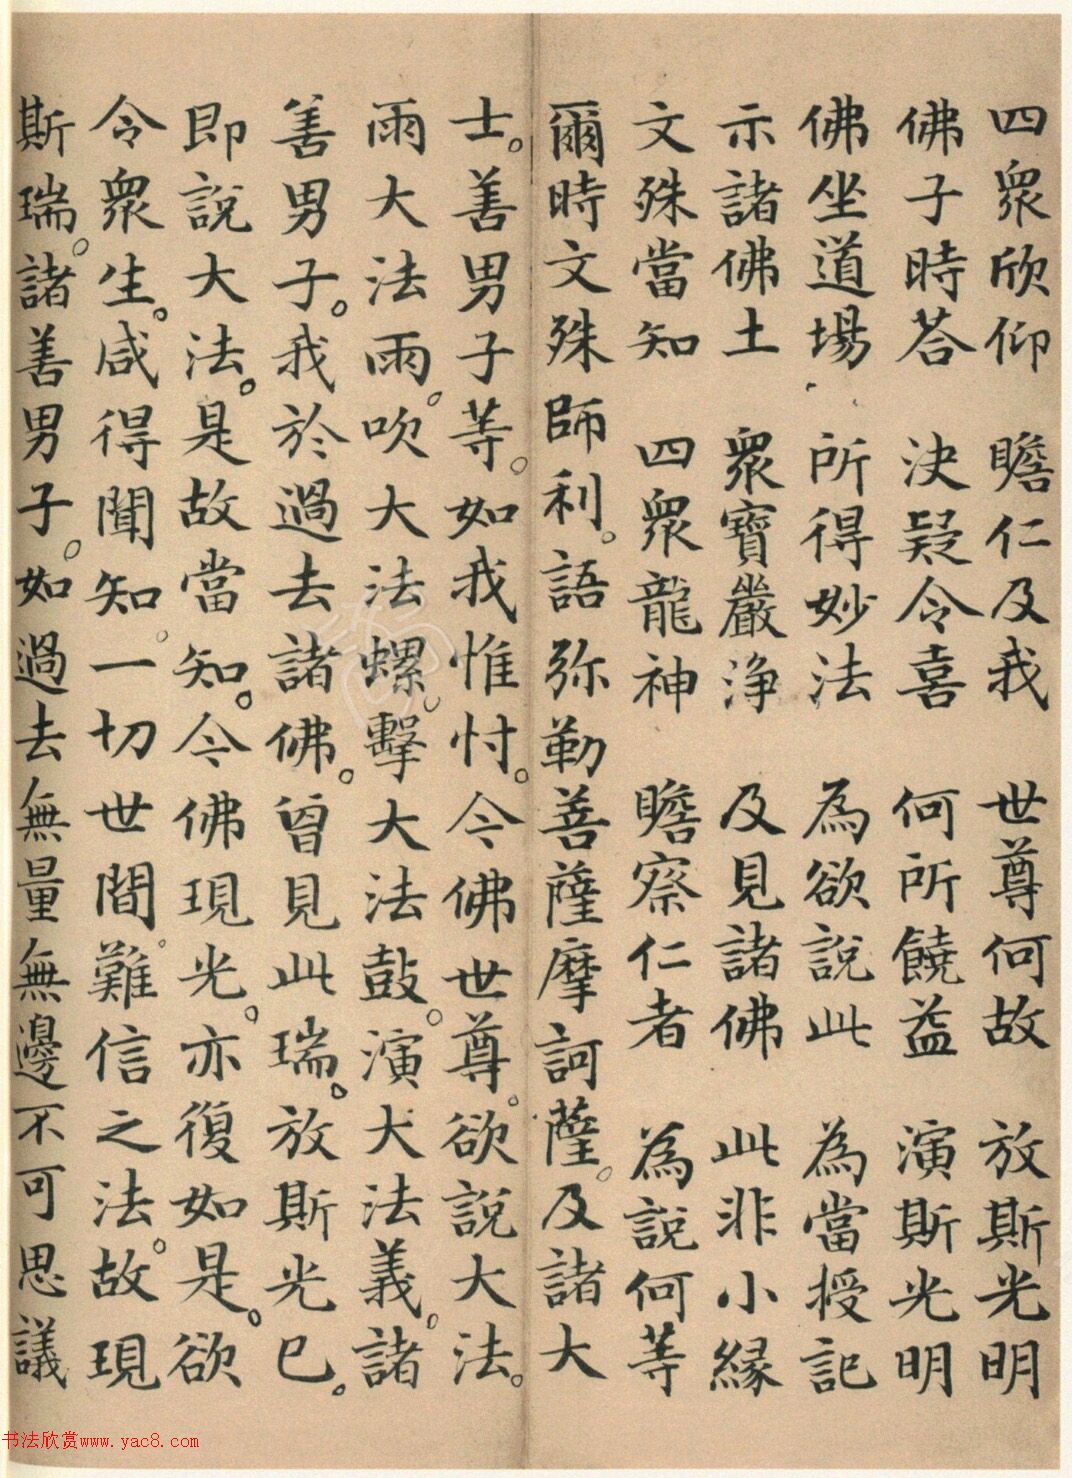 四衆欣仰　瞻仁及我　世尊何故　放斯光明
佛子時荅　決疑令喜　何所饒益　演斯光明
佛坐道場　所得妙法　為欲說此　為當授記
示諸佛土　衆寶嚴淨　及見諸佛　此非小緣
文殊當知　四衆龍神　瞻察仁者　為說何等
爾時文殊師利。語弥勒菩薩摩訶薩。及諸大
士。善男子等。如我惟忖。今佛世尊。欲說大法。
雨大法雨。吹大法螺。擊大法鼓。演大法義。諸
善男子。我於過去諸佛。曾見此瑞。放斯光已。
即說大法。是故當知。今佛現光。亦復如是。欲
令衆生。咸得聞知。一切世間。難信之法。故現
斯瑞。諸善男子。如過去無量無邊不可思議
书法欣赏www.yac8.com